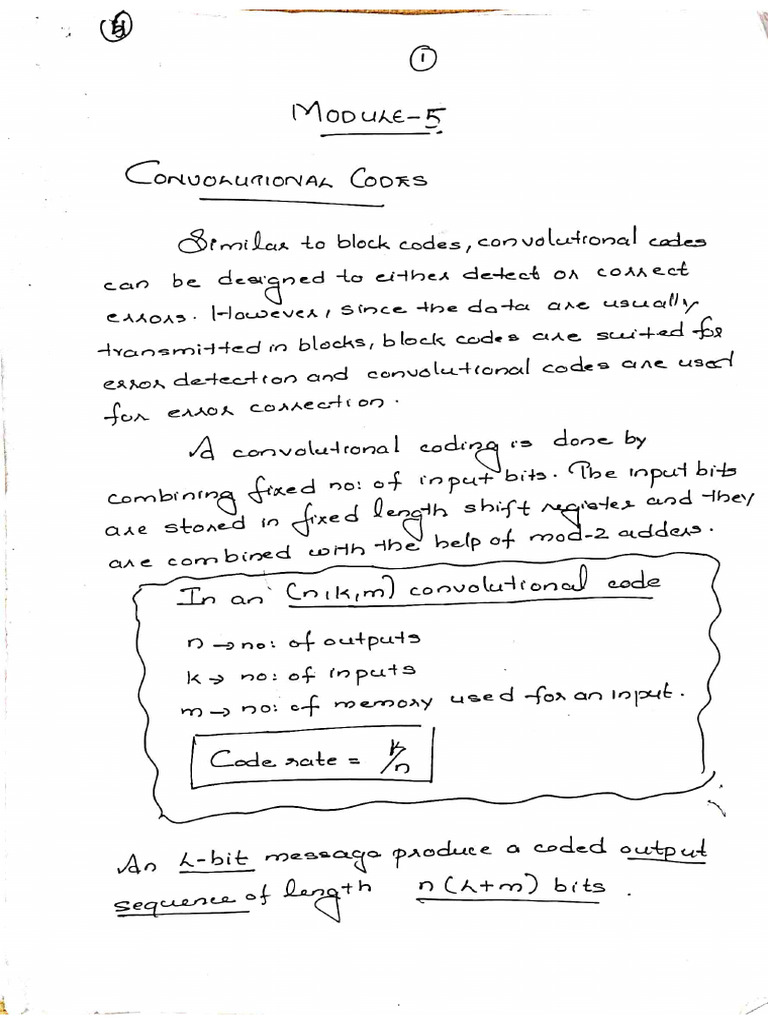 5
1
MODULE-5
CONVOLUTIONAL CODES
Similar to block codes, convolutional codes
can be designed to either detect or correct
errors. However, since the data are usually
transmitted in blocks, block codes are suited for
error detection and convolutional codes are used
for error correction.
A convolutional coding is done by
combining fixed no: of input bits. The input bits
are stored in fixed length shift register and they
are combined with the help of mod-2 adders.
In an (n,k,m) convolutional code
n → no: of outputs
k → no: of inputs
m → no: of memory used for an input.
Code rate = k/n
An L-bit message produce a coded output
sequence of length n(L+m) bits.